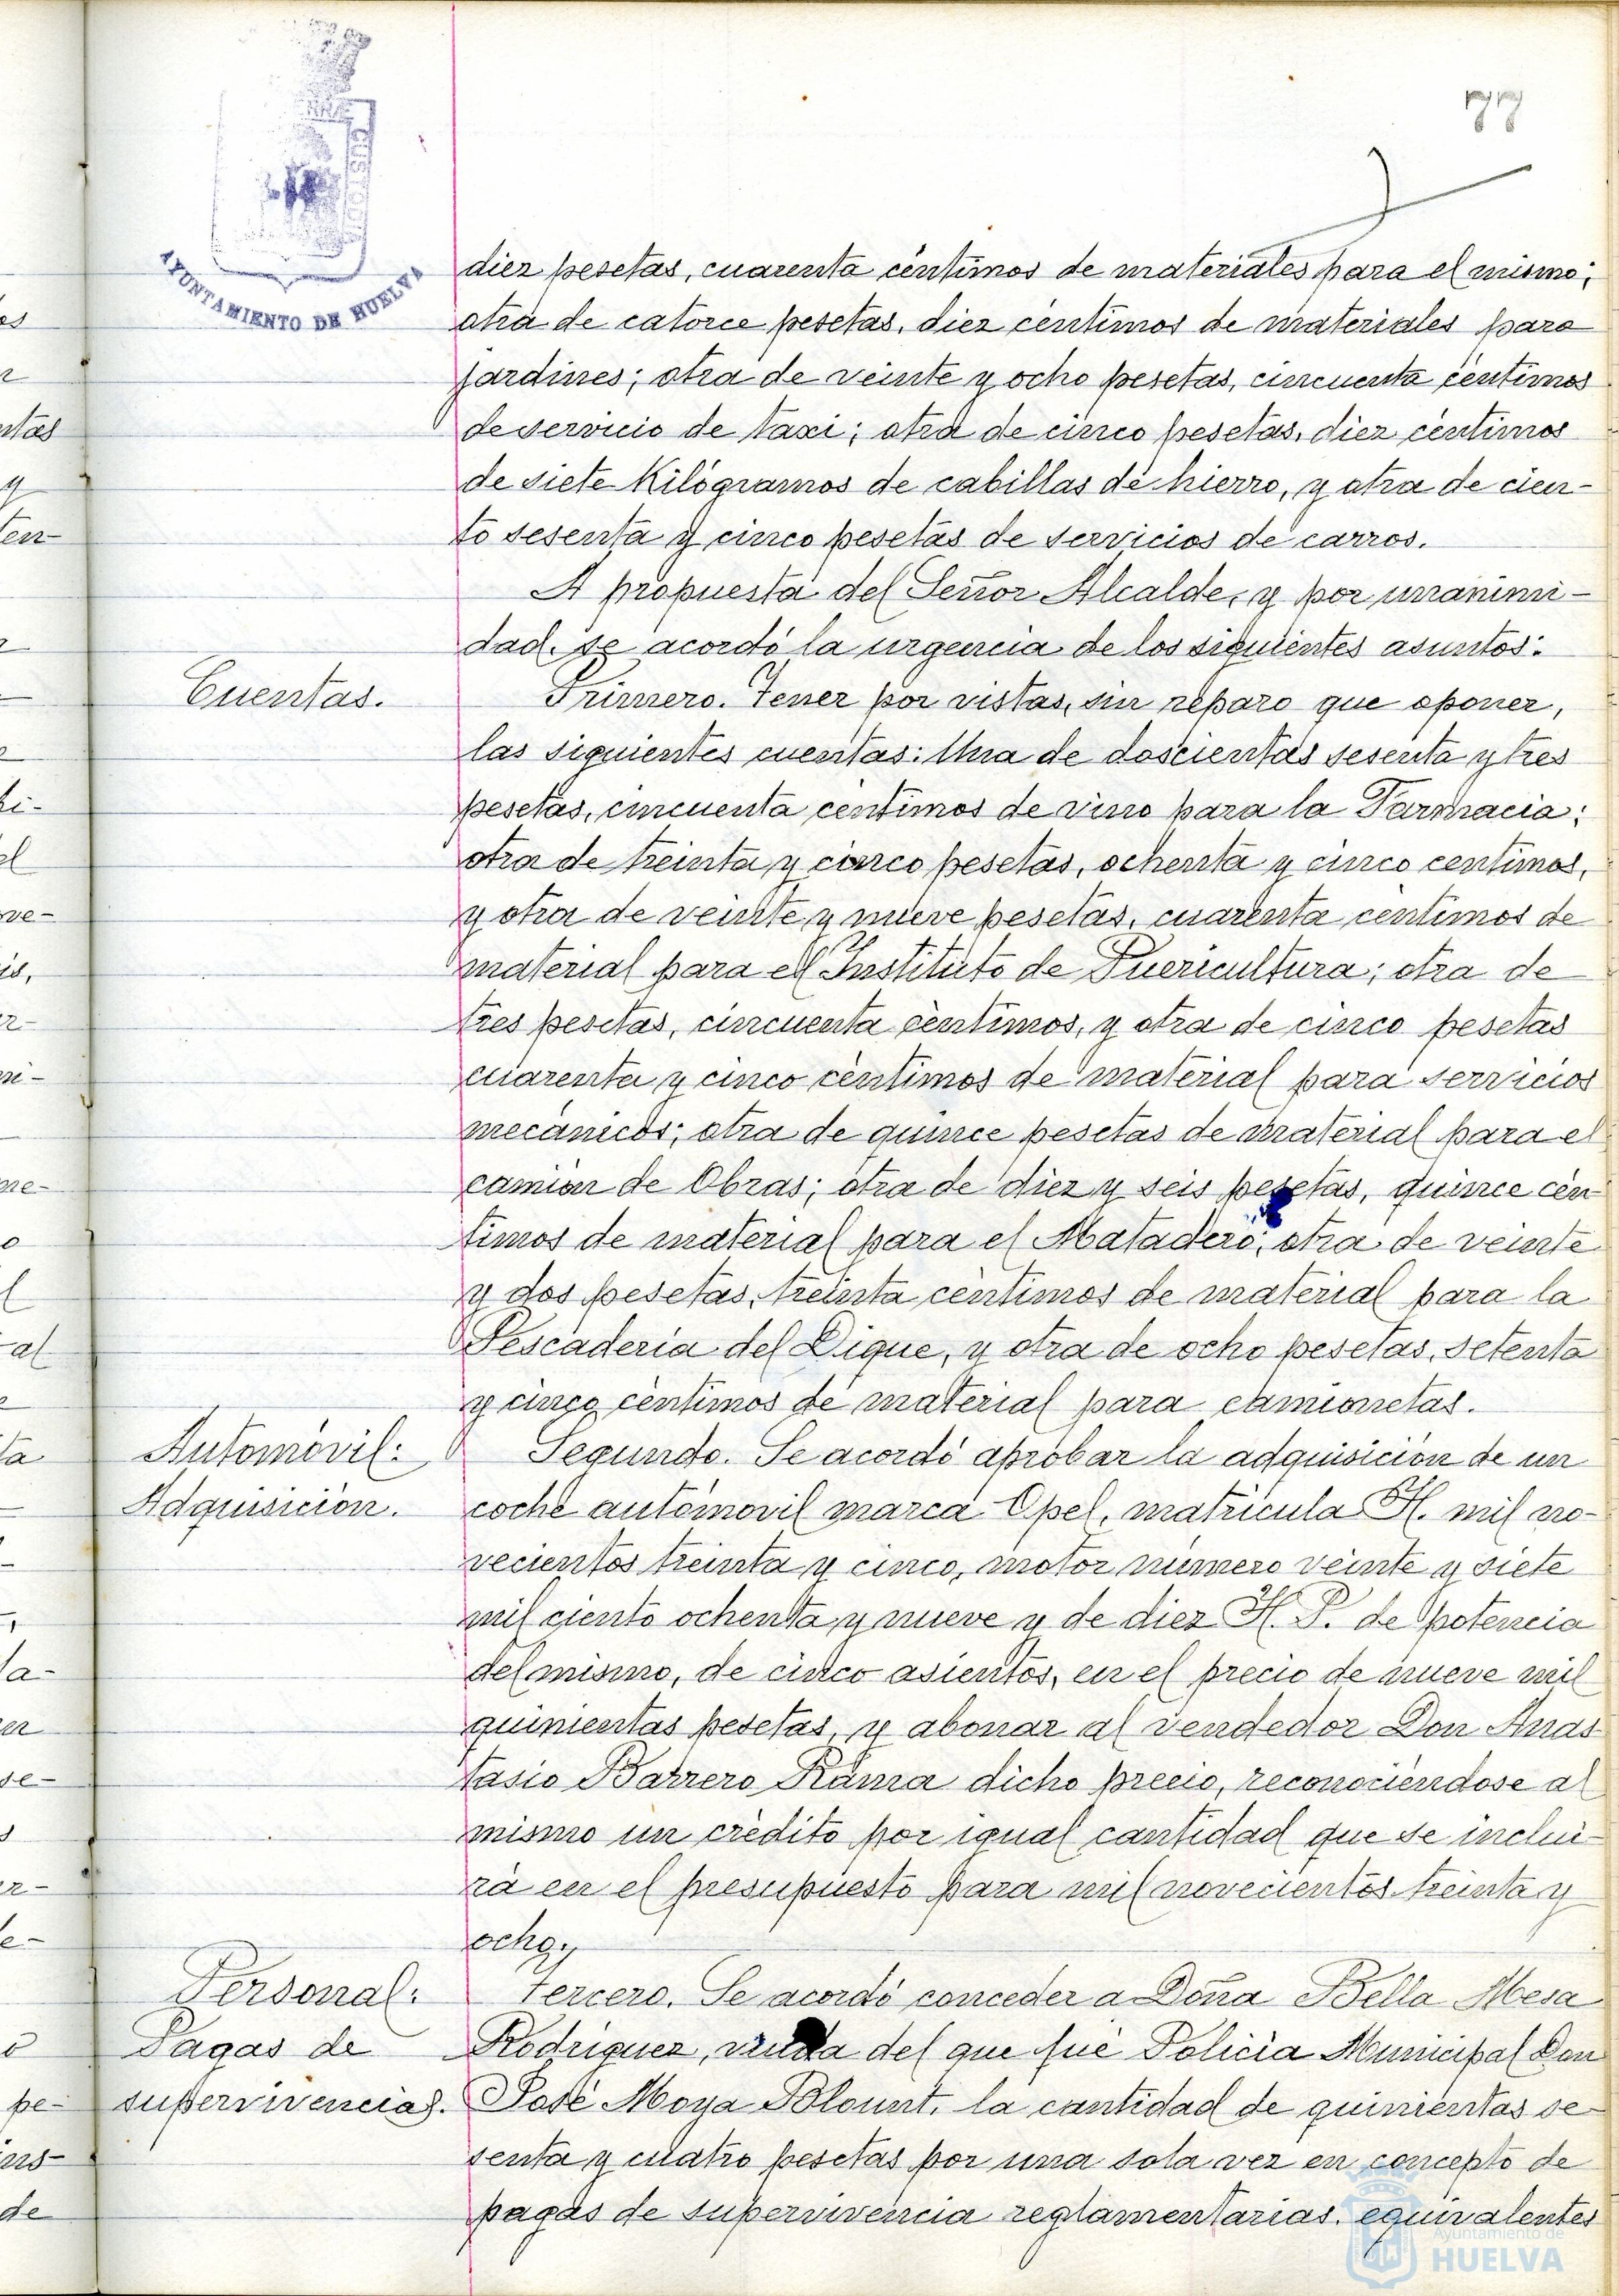 77
AYUNTAMIENTO DE HUELVA
diez pesetas, cuarenta céntimos de materiales para el mismo;
otra de catorce pesetas, diez céntimos de materiales para
jardines; otra de veinte y ocho pesetas, cincuenta céntimos
de servicio de taxi; otra de cinco pesetas, diez céntimos
de siete Kilógramos de cabillas de hierro, y otra de cien-
to sesenta y cinco pesetas de servicios de carros.
A propuesta del Señor Alcalde, y por unanimi-
dad, se acordó la urgencia de los siguientes asuntos:
Cuentas.
Primero. Tener por vistas, sin reparo que oponer,
las siguientes cuentas: Una de doscientas sesenta y tres
pesetas, cincuenta centimos de vino para la Farmacia;
otra de treinta y cinco pesetas, ochenta y cinco centimos,
y otra de veinte y nueve pesetas, cuarenta centimos de
material para el Instituto de Puericultura; otra de
tres pesetas, cincuenta céntimos, y otra de cinco pesetas
cuarenta y cinco céntimos de material para servicios
mecánicos; otra de quince pesetas de material para el
camión de Obras; otra de diez y seis pesetas, quince cén-
timos de material para el Matadero; otra de veinte
y dos pesetas, treinta céntimos de material para la
Pescadería del Dique, y otra de ocho pesetas, setenta
y cinco céntimos de material para camionetas.
Automóvil:
Adquisición.
Segundo. Se acordó aprobar la adquisición de un
coche automóvil marca Opel, matrícula H. mil no-
vecientos treinta y cinco, motor número veinte y siete
mil ciento ochenta y nueve y de diez H. P. de potencia
del mismo, de cinco asientos, en el precio de nueve mil
quinientas pesetas, y abonar al vendedor Don Anas
tasio Barrero Rama dicho precio, reconociéndose al
mismo un crédito por igual cantidad que se inclui-
rá en el presupuesto para mil novecientos treinta y
ocho.
Personal:
Pagas de
supervivencias.
Tercero. Se acordó conceder a Doña Bella Mesa
Rodríguez, viuda del que fué Policía Municipal Don
José Moya Blount, la cantidad de quinientas se-
senta y cuatro pesetas por una sola vez en concepto de
pagas de supervivencia reglamentarias, equivalentes
Ayuntamiento de
HUELVA